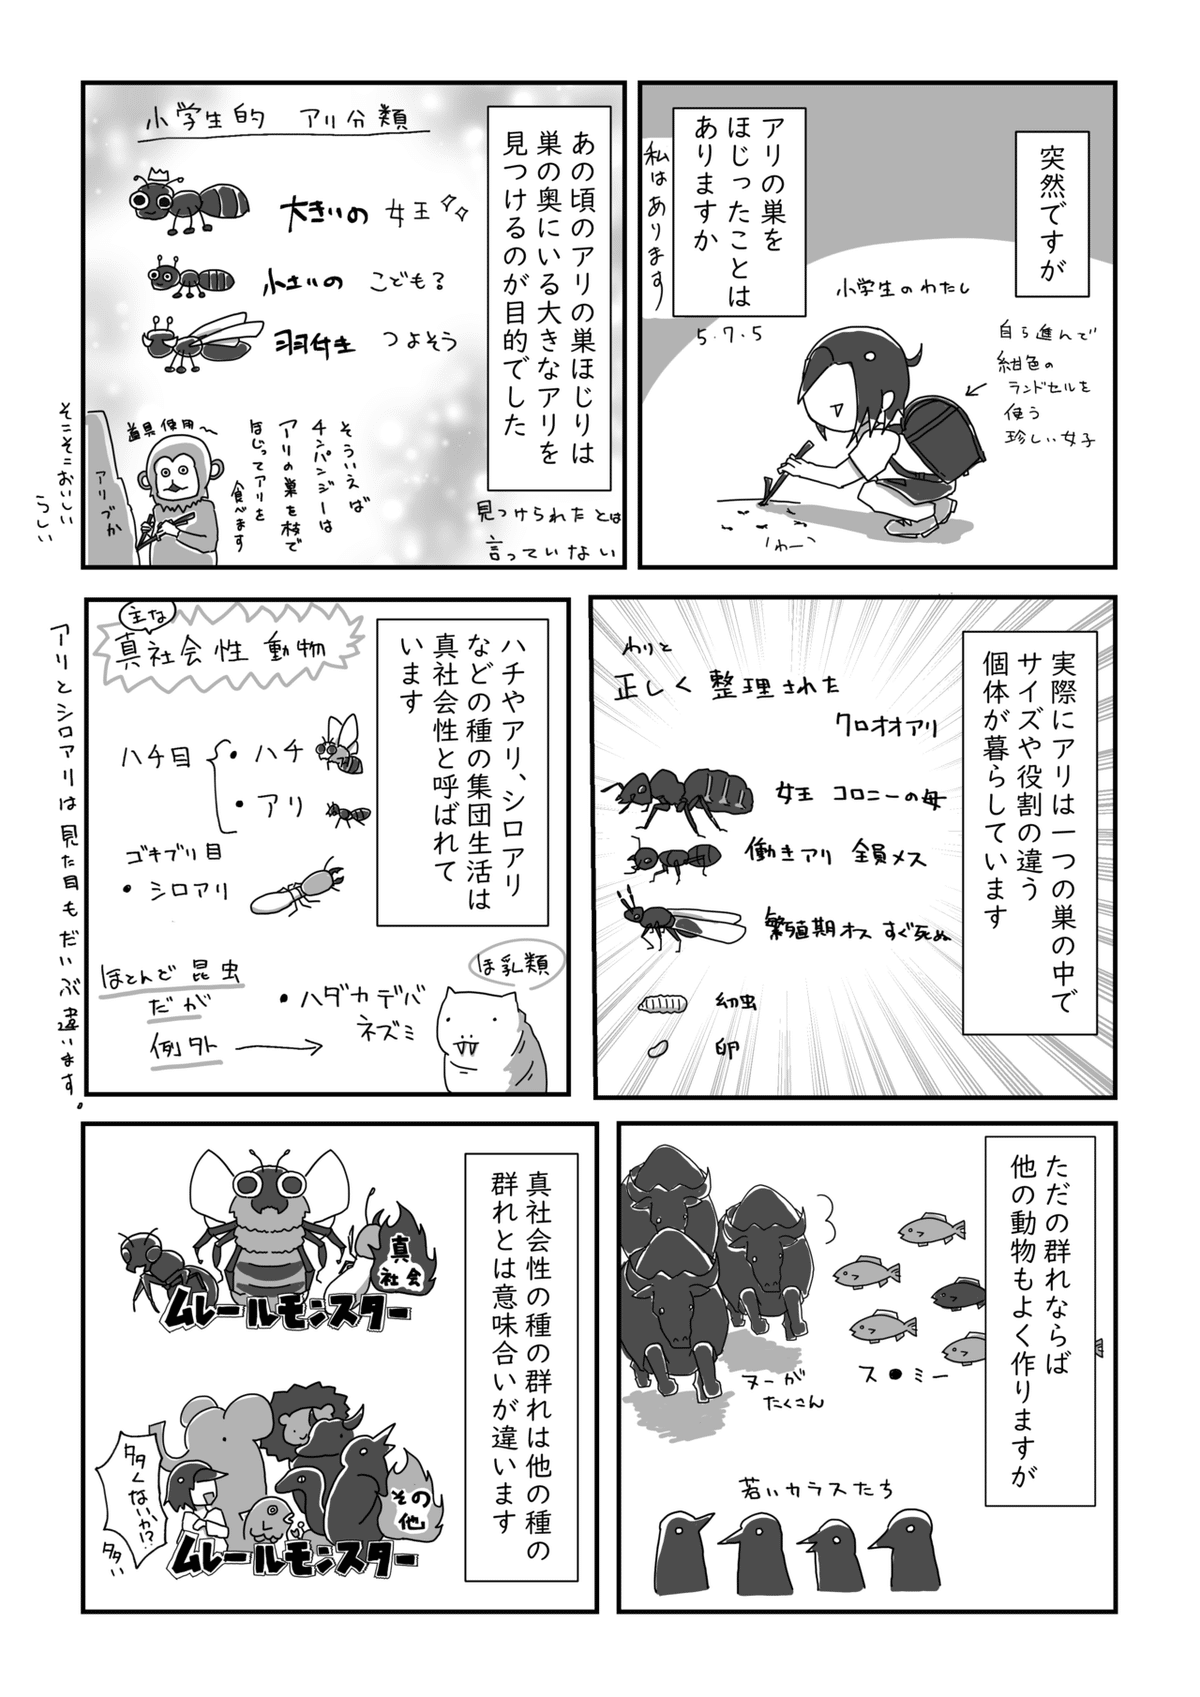 突然ですが
アリの巣を
ほじったことは
ありますか
私はあります
5.7.5
小学生のわたし
自ら進んで
紺色の
ランドセルを
使う
珍しい女子
わー
あの頃のアリの巣ほじりは
巣の奥にいる大きなアリを
見つけるのが目的でした
見つけられたとは
言っていない
小学生的 アリ分類
大きいの 女王
小さいの こども?
羽付き つよそう
そういえば
チンパンジーは
アリの巣を枝で
ほじってアリを
食べます
道具使用〜
アリづか
そこそこおいしい
らしい
実際にアリは一つの巣の中で
サイズや役割の違う
個体が暮らしています
わりと
正しく整理された
クロオオアリ
女王 コロニーの母
働きアリ 全員メス
繁殖期オス すぐ死ぬ
幼虫
卵
ハチやアリ、シロアリ
などの種の集団生活は
真社会性と呼ばれて
います
主な
真社会性動物
ハチ目
・ハチ
・アリ
ゴキブリ目
・シロアリ
ほとんど昆虫
だが
例外
・ハダカデバ
ネズミ
ほ乳類
アリとシロアリは見た目もだいぶ違います。
ただの群れならば
他の動物もよく作りますが
ヌーが
たくさん
ス●ミー
若いカラスたち
真社会性の種の群れは他の種の
群れとは意味合いが違います
真
社会
ムレールモンスター
タタくないか!?
タタ
その
他
ムレールモンスター